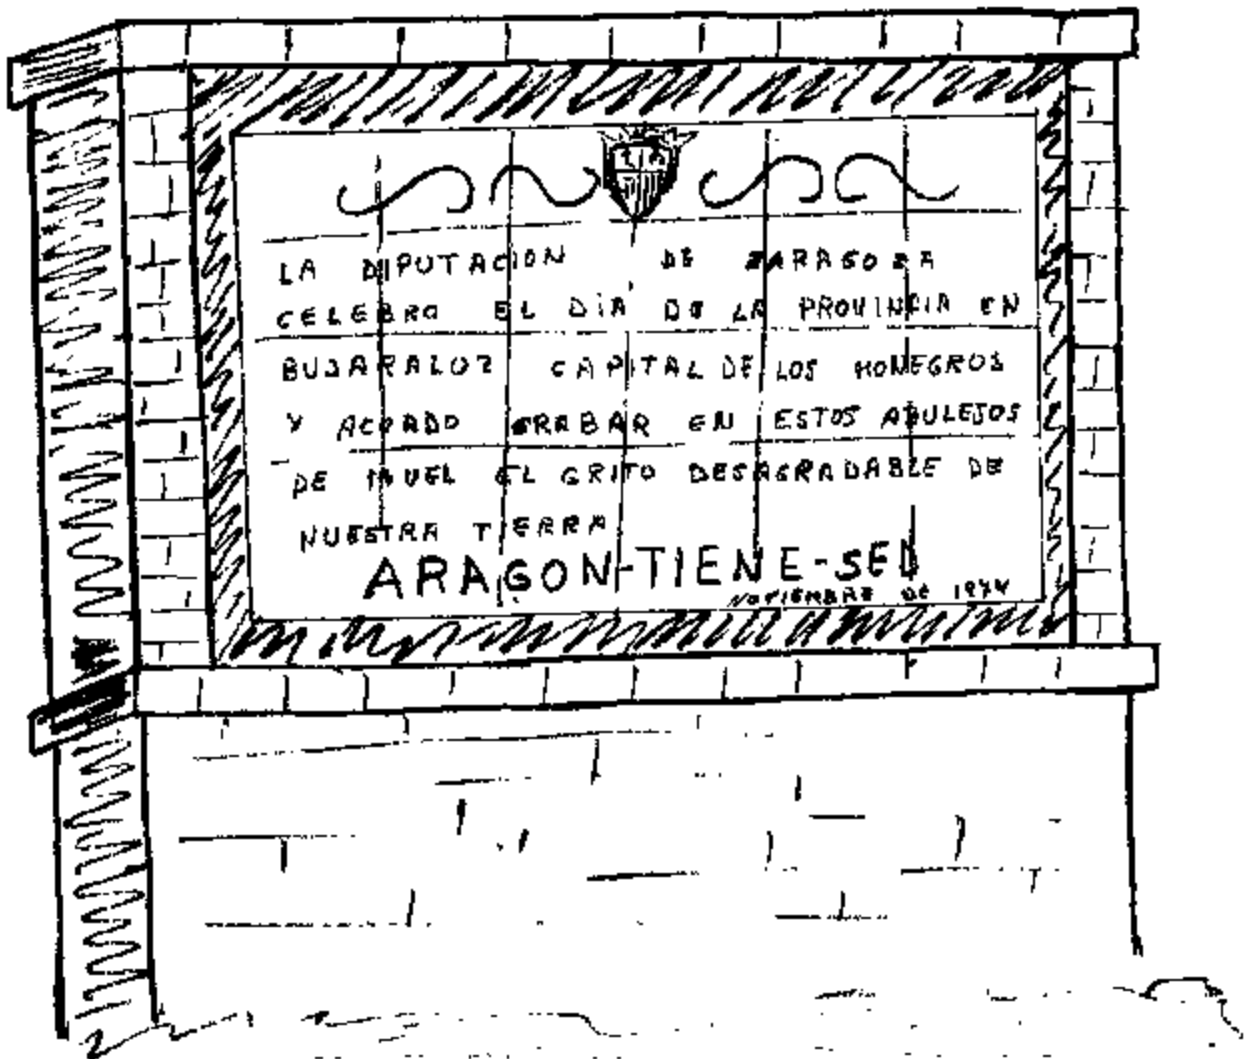 LA DIPUTACION DE ZARAGOZA
CELEBRO EL DIA DE LA PROVINCIA EN
BUJARALOZ CAPITAL DE LOS MONEGROS
Y ACORDO GRABAR EN ESTOS AZULEJOS
DE MUEL EL GRITO DESAGRADABLE DE
NUESTRA TIERRA
ARAGON-TIENE-SED
NOVIEMBRE DE